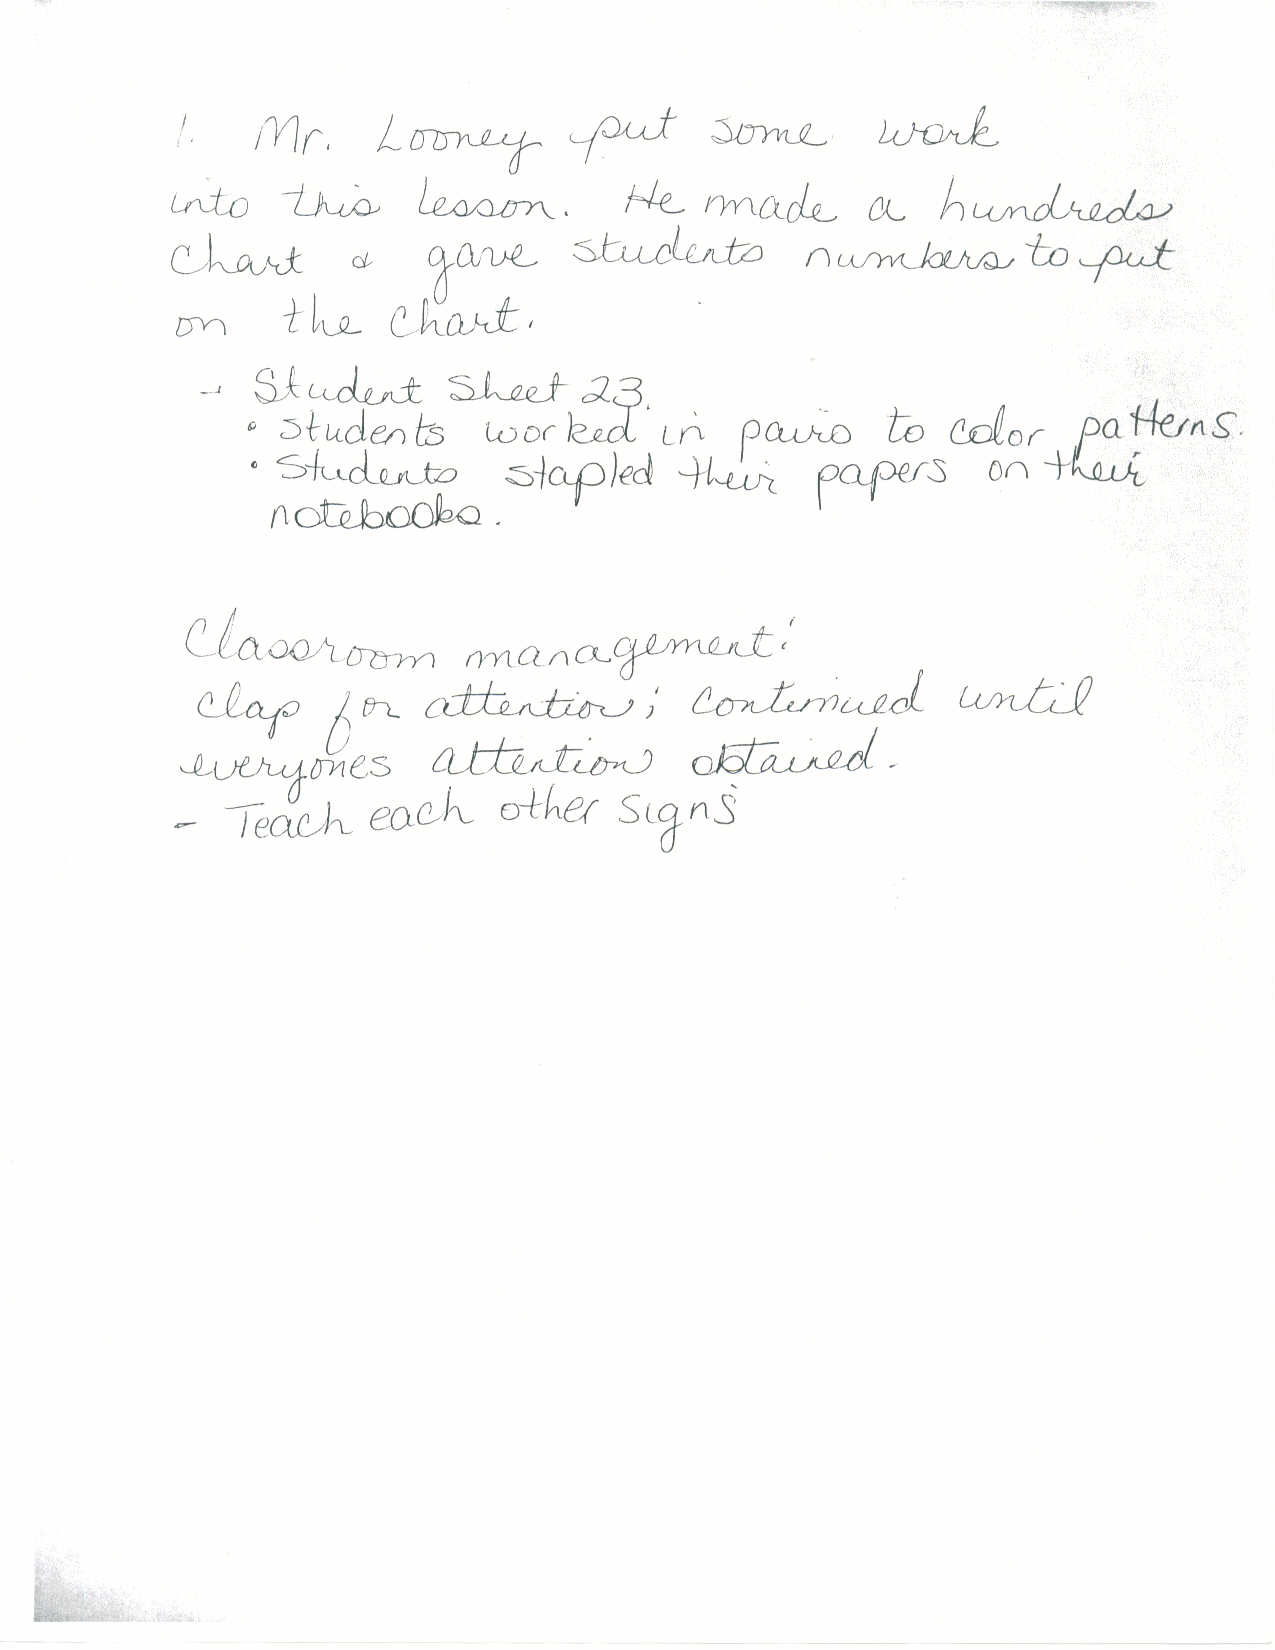 1. Mr. Looney put some work
into this lesson. He made a hundreds
chart & gave students numbers to put
on the chart.
- Student Sheet 23.
° Students worked in pairs to color patterns.
° Students stapled their papers on their
notebooks.
Classroom management:
clap for attention; continued until
everyones attention obtained.
- Teach each other signs